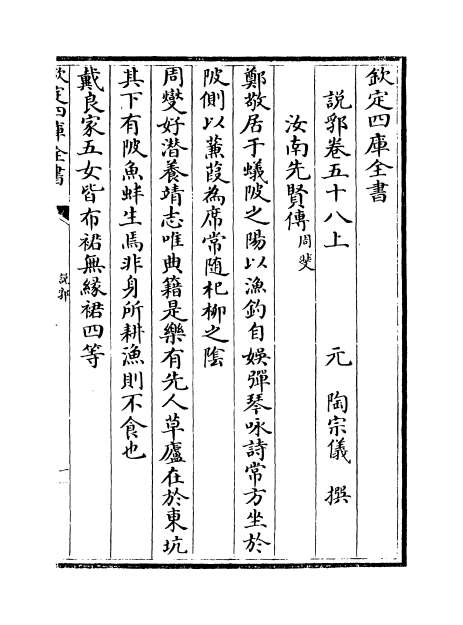 欽定四庫全書
說郛卷五十八上
元 陶宗儀 撰
汝南先賢傳周斐
鄭敬居于蟻陂之陽以漁釣自娛彈琴咏詩常方坐於
陂側以蒹葭為席常隨杞柳之隂
周燮好潛養靖志唯典籍是樂有先人草廬在於東坑
其下有陂魚蚌生焉非身所耕漁則不食也
戴良家五女皆布裙無緣裙四等
欽定四庫全書
說郛
一